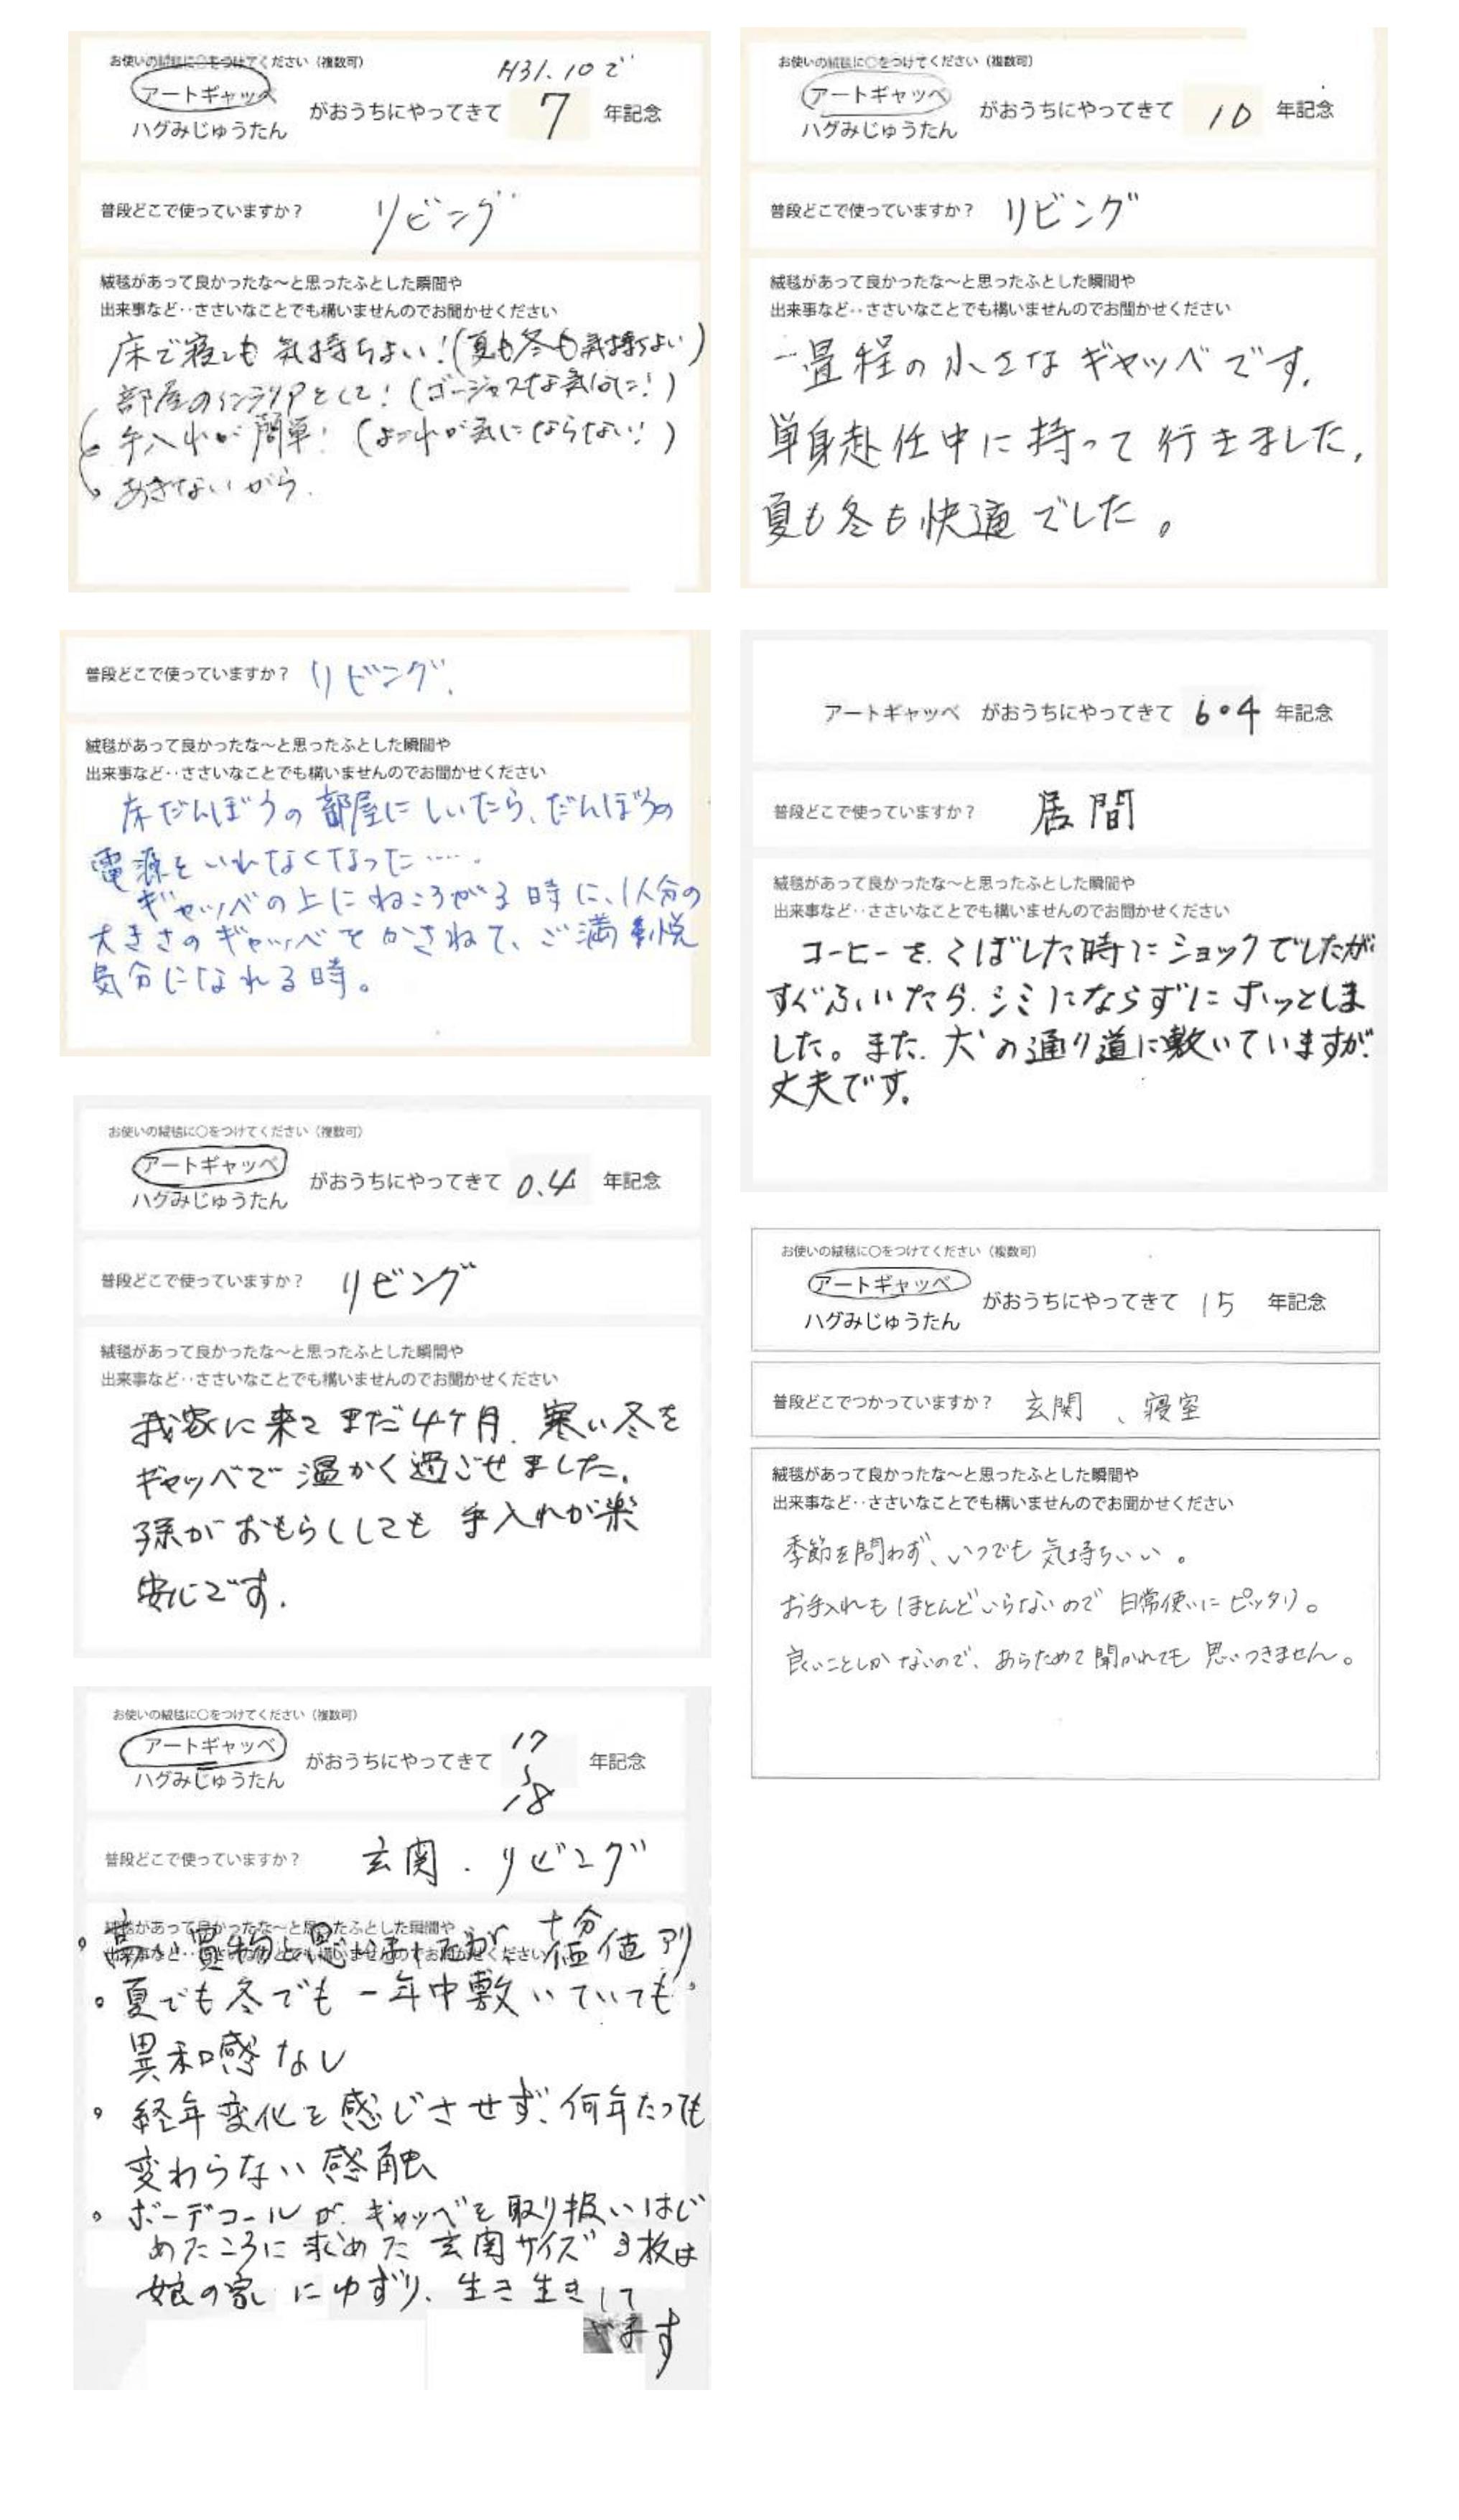 お使いの絨毯に○をつけてください（複数可）
H31.10で
アートギャッベ
ハグみじゅうたん
がおうちにやってきて 7 年記念
普段どこで使っていますか？ リビング
絨毯があって良かったな～と思ったふとした瞬間や
出来事など‥ささいなことでも構いませんのでお聞かせください
床で寝ても気持ちよい！（夏も冬も気持ちよい）
部屋のインテリアとして！（ゴージャスな気分に！）
手入れが簡単！（よごれが気にならない！）
あきないがら.
お使いの絨毯に○をつけてください（複数可）
アートギャッベ
ハグみじゅうたん
がおうちにやってきて 10 年記念
普段どこで使っていますか？ リビング
絨毯があって良かったな～と思ったふとした瞬間や
出来事など‥ささいなことでも構いませんのでお聞かせください
一畳程の小さなギャッベです.
単身赴任中に持って行きました.
夏も冬も快適でした。
普段どこで使っていますか？ リビング.
絨毯があって良かったな～と思ったふとした瞬間や
出来事など‥ささいなことでも構いませんのでお聞かせください
床だんぼうの部屋にしいたら、だんぼうの
電源をいれなくなった…..
ギャッベの上にねころがる時に、1人分の
大きさのギャッベをかさねて、ご満悦
気分になれる時。
アートギャッベ がおうちにやってきて 6・4 年記念
普段どこで使っていますか？ 居間
絨毯があって良かったな～と思ったふとした瞬間や
出来事など‥ささいなことでも構いませんのでお聞かせください
コーヒーをこぼした時にショックでしたが
すぐふいたら、シミにならずにホッとしま
した。また、犬の通り道に敷いていますが、
丈夫です。
お使いの絨毯に○をつけてください（複数可）
アートギャッベ
ハグみじゅうたん
がおうちにやってきて 0.4 年記念
普段どこで使っていますか？ リビング
絨毯があって良かったな～と思ったふとした瞬間や
出来事など‥ささいなことでも構いませんのでお聞かせください
我家に来てまだ4ケ月. 寒い冬を
ギャッベで温かく過ごせました.
孫がおもらししても手入れが楽
安心です.
お使いの絨毯に○をつけてください（複数可）
アートギャッベ
ハグみじゅうたん
がおうちにやってきて 15 年記念
普段どこでつかっていますか？ 玄関、寝室
絨毯があって良かったな～と思ったふとした瞬間や
出来事など‥ささいなことでも構いませんのでお聞かせください
季節を問わず、いつでも気持ちいい。
お手入れもほとんどいらないので日常使いにピッタリ。
良いことしかないので、あらためて聞かれても思いつきません。
お使いの絨毯に○をつけてください（複数可）
アートギャッベ
ハグみじゅうたん
がおうちにやってきて 17〜18 年記念
普段どこで使っていますか？ 玄関・リビング
絨毯があって良かったな～と思ったふとした瞬間や
出来事など‥ささいなことでも構いませんのでお聞かせください
。高い買物と思いましたが、十分価値アリ
。夏でも冬でも一年中敷いていても
異和感なし
。経年変化を感じさせず、何年たっても
変わらない感触
。ボーデコールが、ギャッベを取り扱いはじ
めたころに求めた玄関サイズ3枚は
娘の家にゆずり、生き生きして
います